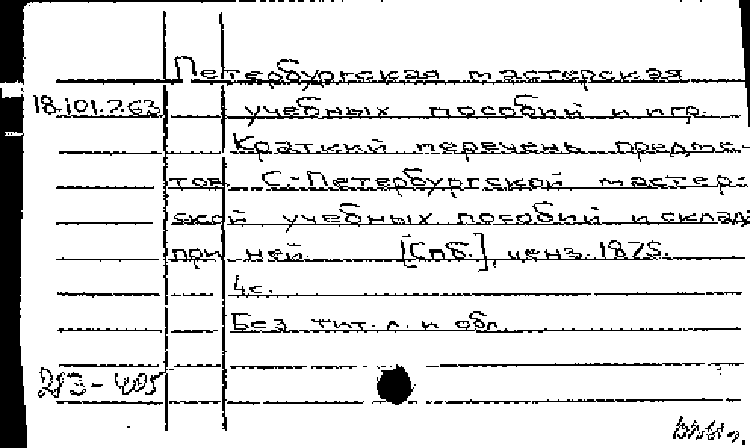 Петербургская мастерская
18.101.2.63 учебных пособий и игр.
Краткий перечень предме-
тов С.-Петербургской мастер-
ской учебных пособий и склада
при ней [Спб.], ценз. 1875.
4 с.
Без тит. л. и обл.
213-405